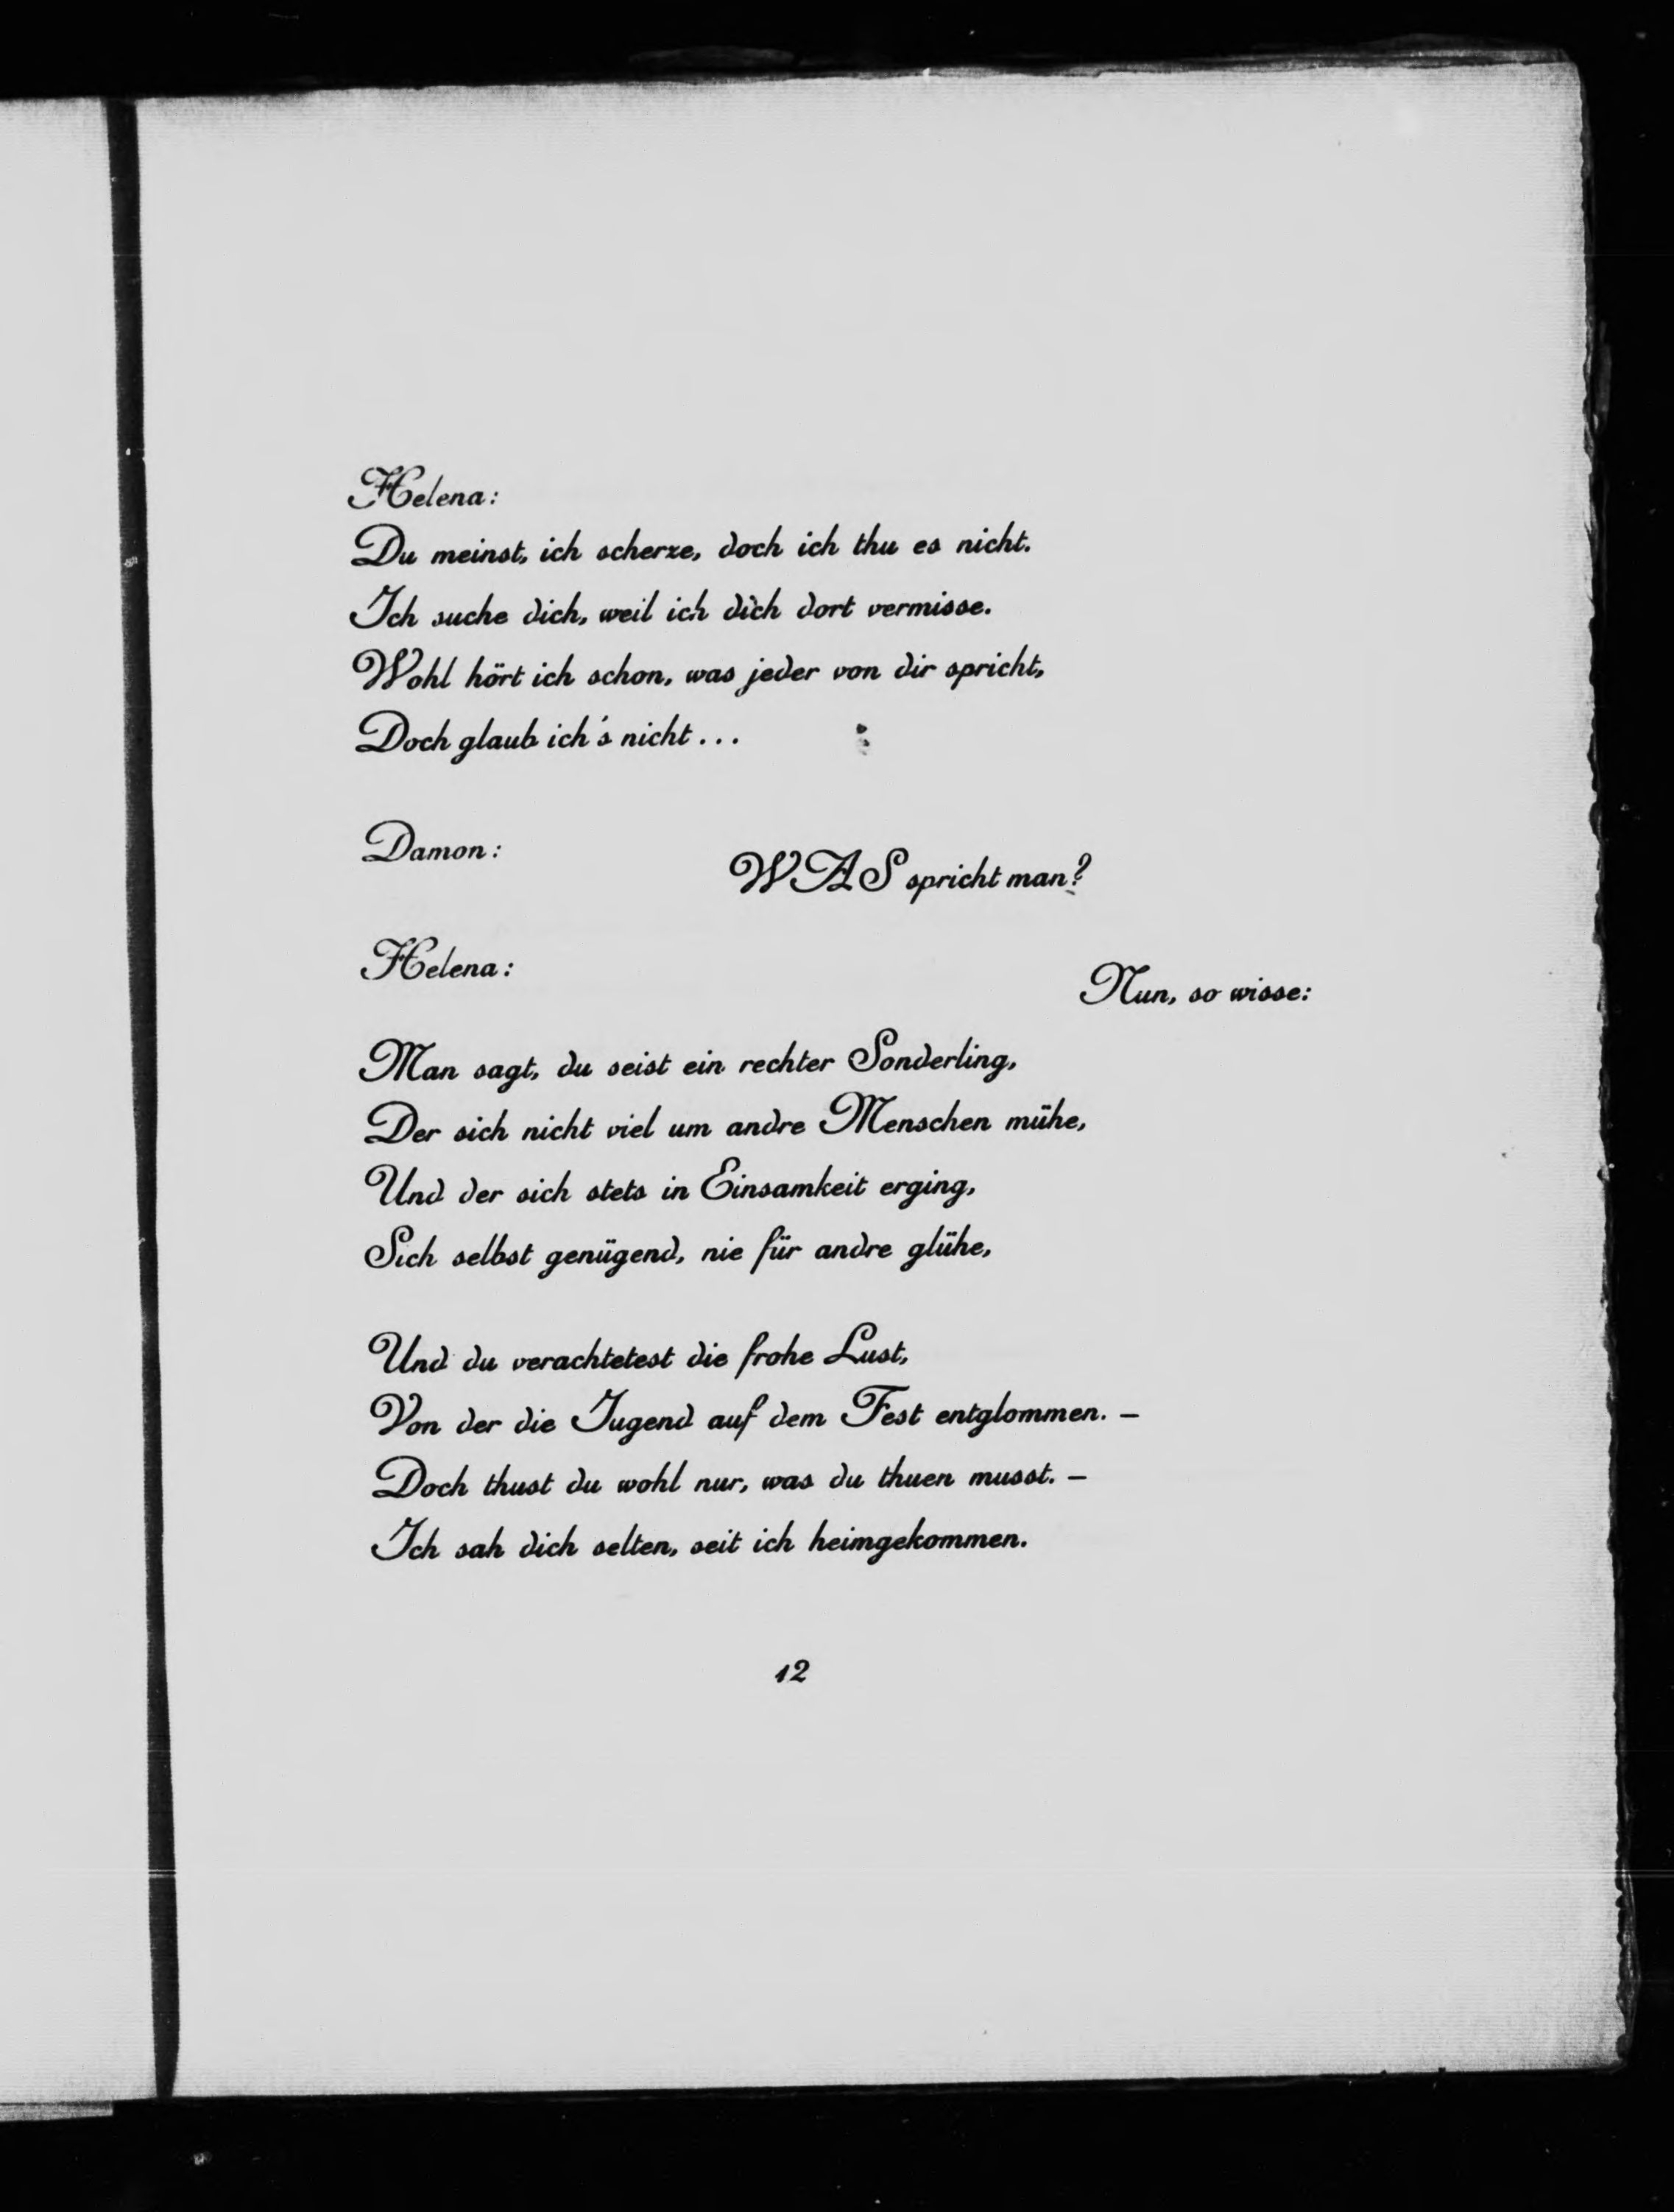 Helena:
Du meinst, ich scherze, doch ich thu es nicht.
Ich suche dich, weil ich dich dort vermisse.
Wohl hört ich schon, was jeder von dir spricht,
Doch glaub ich's nicht . . .
Damon:
WAS spricht man?
Helena:
Nun, so wisse:
Man sagt, du seist ein rechter Sonderling,
Der sich nicht viel um andre Menschen mühe,
Und der sich stets in Einsamkeit erging,
Sich selbst genügend, nie für andre glühe,
Und du verachtetest die frohe Lust,
Von der die Jugend auf dem Fest entglommen. –
Doch thust du wohl nur, was du thuen musst. –
Ich sah dich selten, seit ich heimgekommen.
12